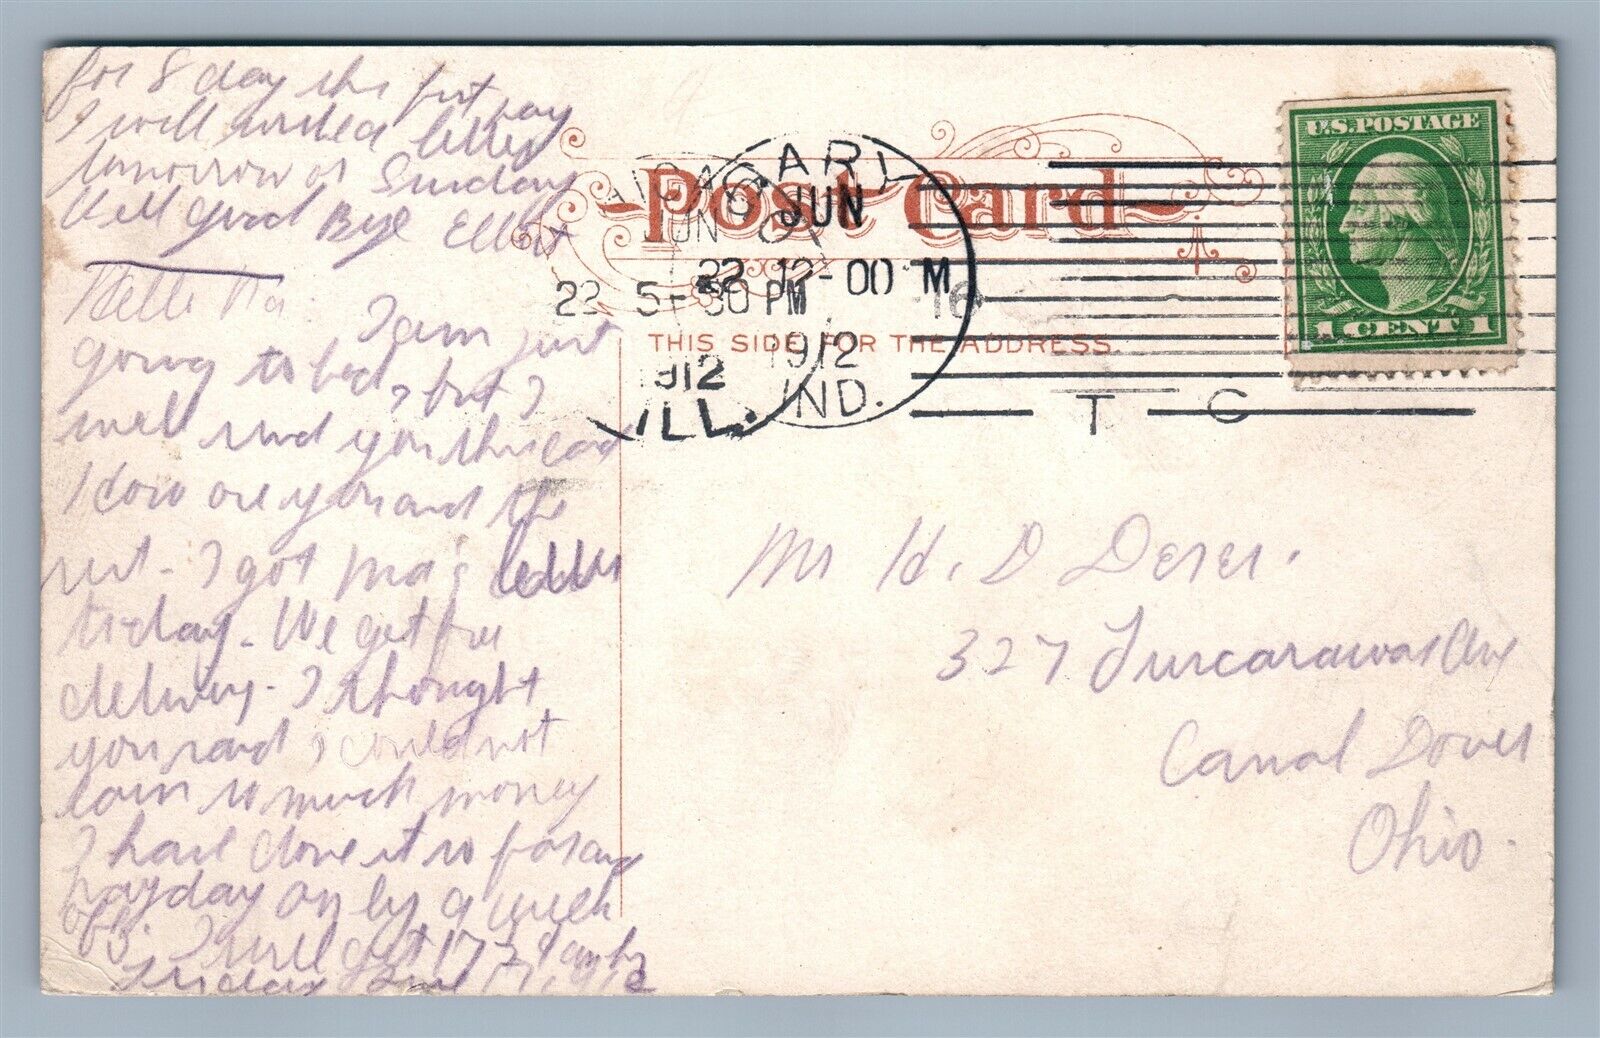 for 8 day the first pay
I will write a letter
tomorrow or Sunday
Well good Bye Elliot
Hello Pa: I am just
going to bed, but I
will send you this card
How are you and the
rest - I got ma's letter
today - We get free
delivery - I thought
you said I could not
earn so much money
I have done it so far and
payday only a week
off. I will get 17
Friday 1912
POST CARD
THIS SIDE FOR THE ADDRESS.
GARY
JUN
22 12-00 M
1912
IND.
JUN
22 5-30 PM
1912
ILL.
T C
U.S. POSTAGE
1 CENT 1
Mr H. D Deser.
327 Tuscarawas Ave
Canal Dover
Ohio.